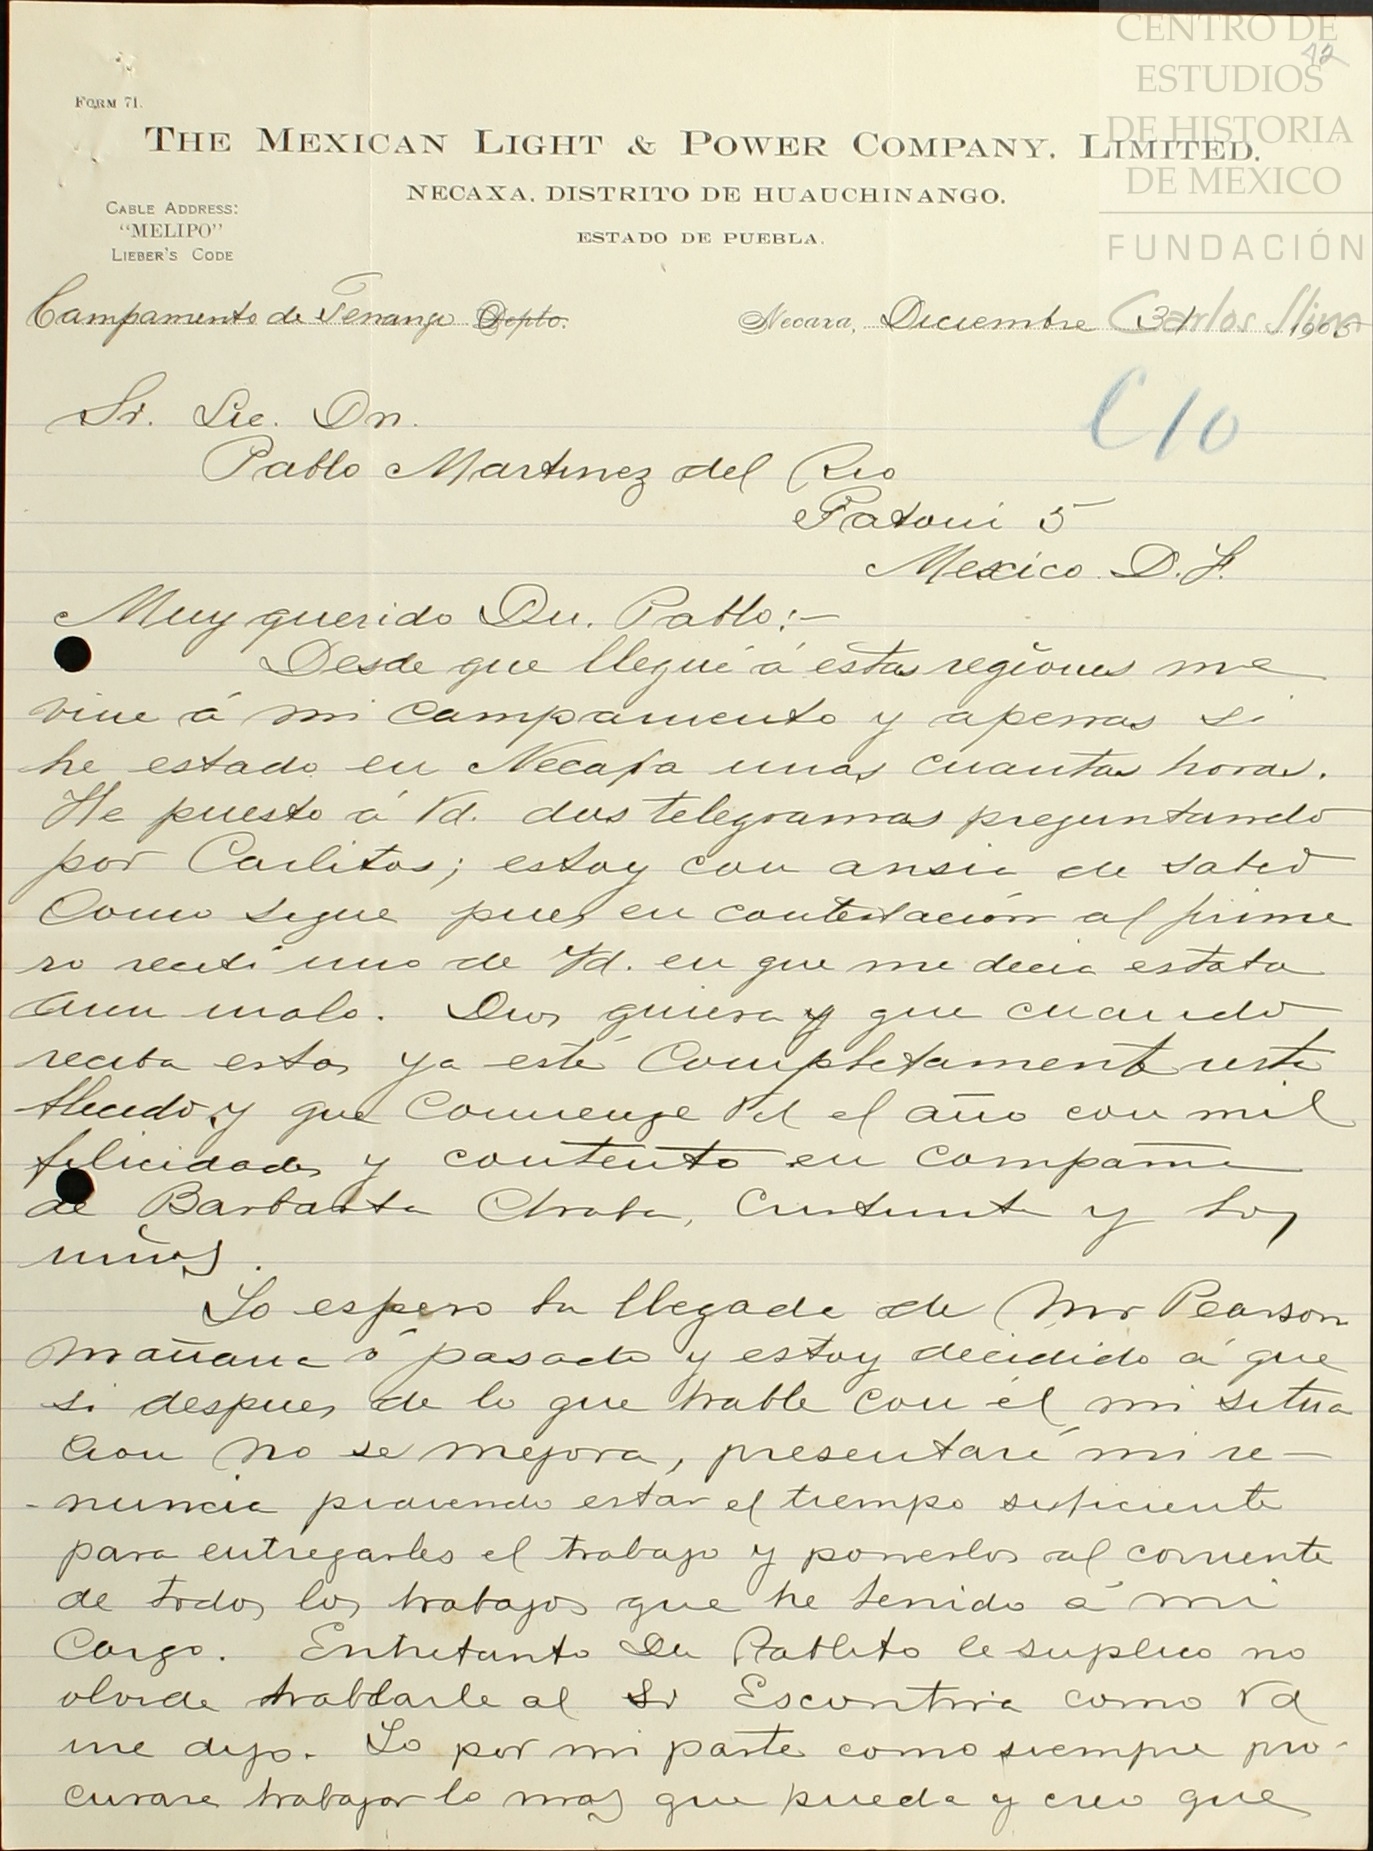 CENTRO DE
ESTUDIOS
DE HISTORIA
DE MEXICO
FUNDACIÓN
Carlos Slim
42
FORM 71.
THE MEXICAN LIGHT & POWER COMPANY, LIMITED.
NECAXA, DISTRITO DE HUAUCHINANGO.
ESTADO DE PUEBLA.
CABLE ADDRESS:
"MELIPO"
LIEBER'S CODE
Campamento de Tenango Depto. Necaxa, Diciembre 31 190
C10
Sr. Lic. Dn.
Pablo Martinez del Rio
Patoni 5
Mexico D.F.
Muy querido Dn. Pablo:—
Desde que llegué á estas regiones me
vine á mi campamento y apenas si
he estado en Necaxa unas cuantas horas.
He puesto á Vd. dos telegramas preguntando
por Carlitos; estoy con ansia de saber
como sigue pues en contestación al prime
ro recibí uno de Vd. en que me decia estaba
aun malo. Dios quiera y que cuando
reciba esta, ya esté completamente resta
blecido y que comienze Vd el año con mil
felicidades y contento en compañia
de Barbarita y los
niños.
Yo espero la llegada de Mr Pearson
mañana ó pasado y estoy decidido á que
si despues de lo que hable con él mi situa
cion no se mejora, presentaré mi re—
-nuncia pidiendo estar el tiempo suficiente
para entregarles el trabajo y ponerlos al corriente
de todos los trabajos que he tenido á mi
cargo. Entretanto Dn Pablito le suplico no
olvide hablarle al Sr Escontria como Vd
me dijo. Yo por mi parte como siempre pro-
curare trabajar lo mas que pueda y creo que